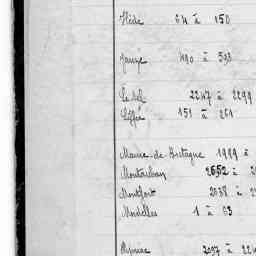 Hède 64 à 150
Janzé 490 à 593
Le Sel 2247 à 2299
Liffré 151 à 261
Maure de Bretagne 1999 à
Montauban 2652 à
Montfort 2038 à
Mordelles 1 à 63
Pipriac 2097 à